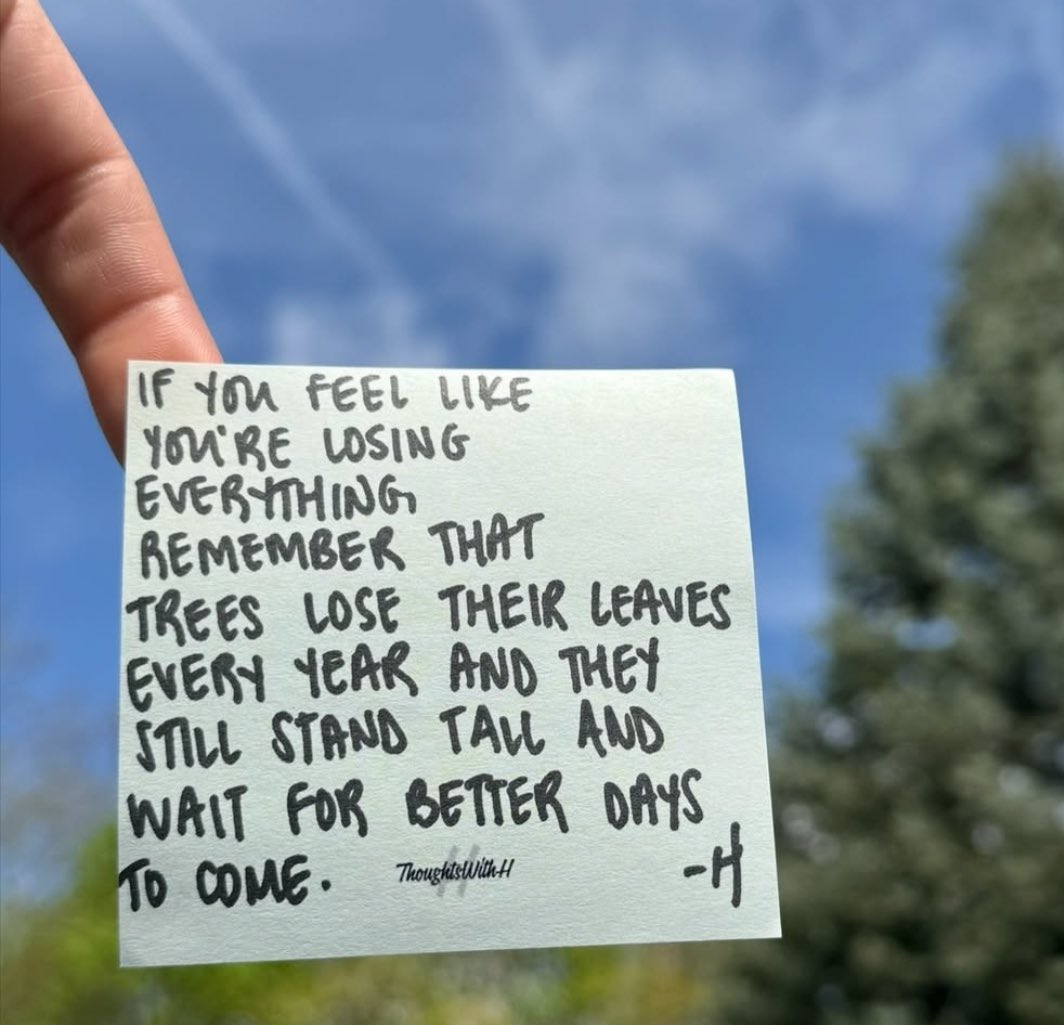 IF YOU FEEL LIKE
YOU'RE LOSING
EVERYTHING
REMEMBER THAT
TREES LOSE THEIR LEAVES
EVERY YEAR AND THEY
STILL STAND TALL AND
WAIT FOR BETTER DAYS
TO COME. ThoughtsWithH -H